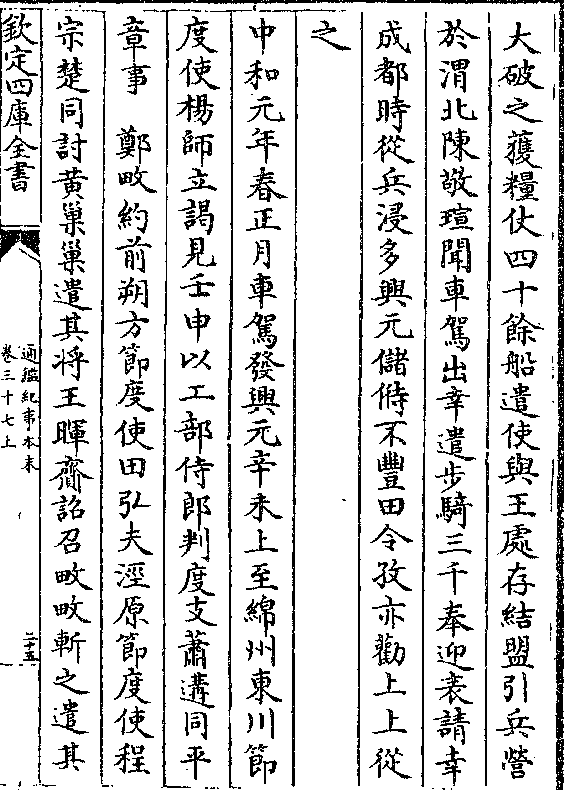 大破之獲糧仗四十餘船遣使與王處存結盟引兵營
於渭北陳敬瑄聞車駕出幸遣步騎三千奉迎表請幸
成都時從兵浸多興元儲偫不豐田令孜亦勸上上從
之
中和元年春正月車駕發興元辛未上至綿州東川節
度使楊師立謁見壬申以工部侍郎判度支蕭遘同平
章事　鄭畋約前朔方節度使田弘夫涇原節度使程
宗楚同討黄巢巢遣其将王暉齎詔召畋畋斬之遣其
欽定四庫全書
通鑑紀事本末
卷三十七上
二十五